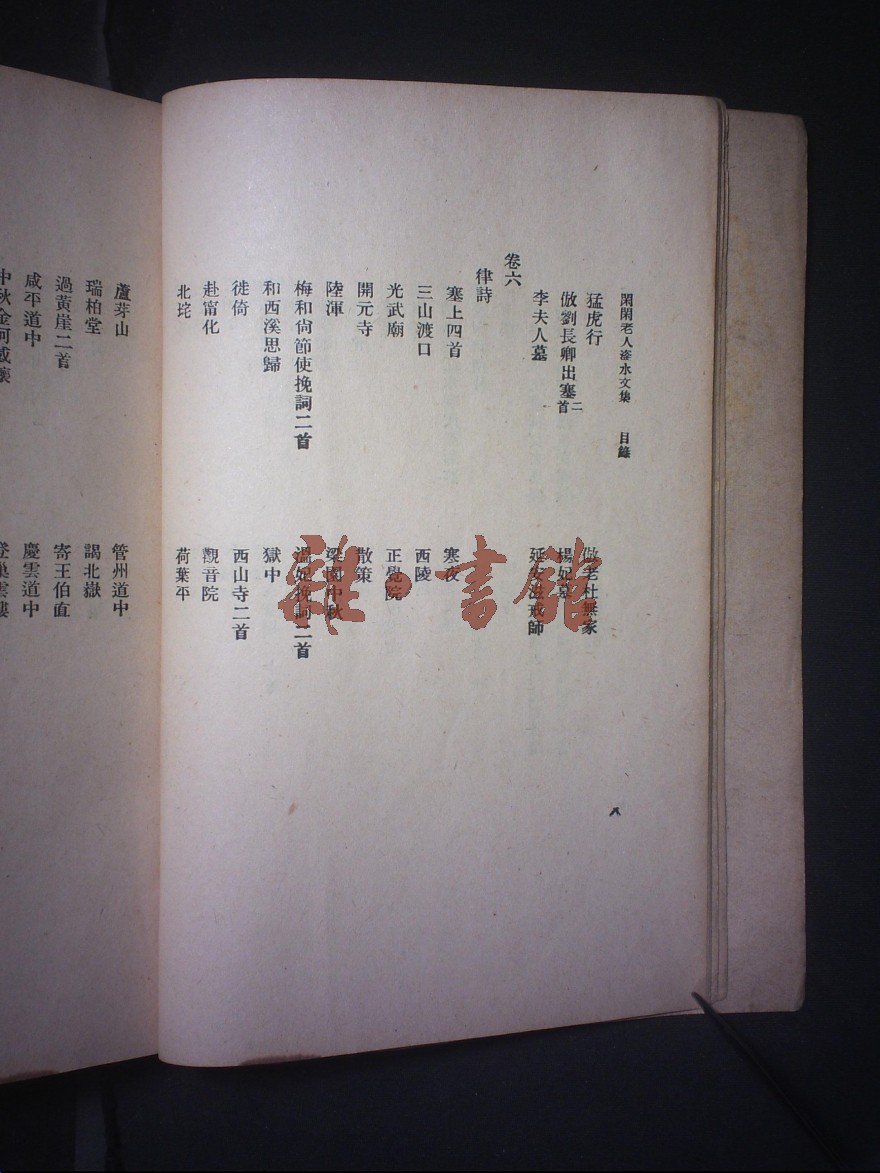 閑閑老人滏水文集 目錄
猛虎行 倣老杜無家
倣劉長卿出塞二首 楊妃墓
李夫人墓 延安滋戒師
卷六
律詩
塞上四首 寒夜
三山渡口 西陵
光武廟 正覺院
開元寺 散策
陸渾 梁園中秋
梅和尙節使挽詞二首 溫妃挽詞二首
和西溪思歸 獄中
徙倚 西山寺二首
赴甯化 觀音院
北垞 荷葉平
八
蘆芽山 管州道中
瑞柏堂 謁北嶽
過黃崖二首 寄王伯直
咸平道中 慶雲道中
中秋金河
雜·書館